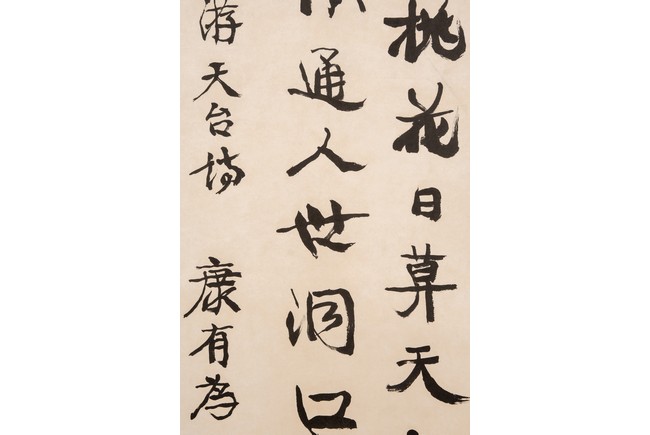 桃花日天
通人世洞口
游天台
康有為